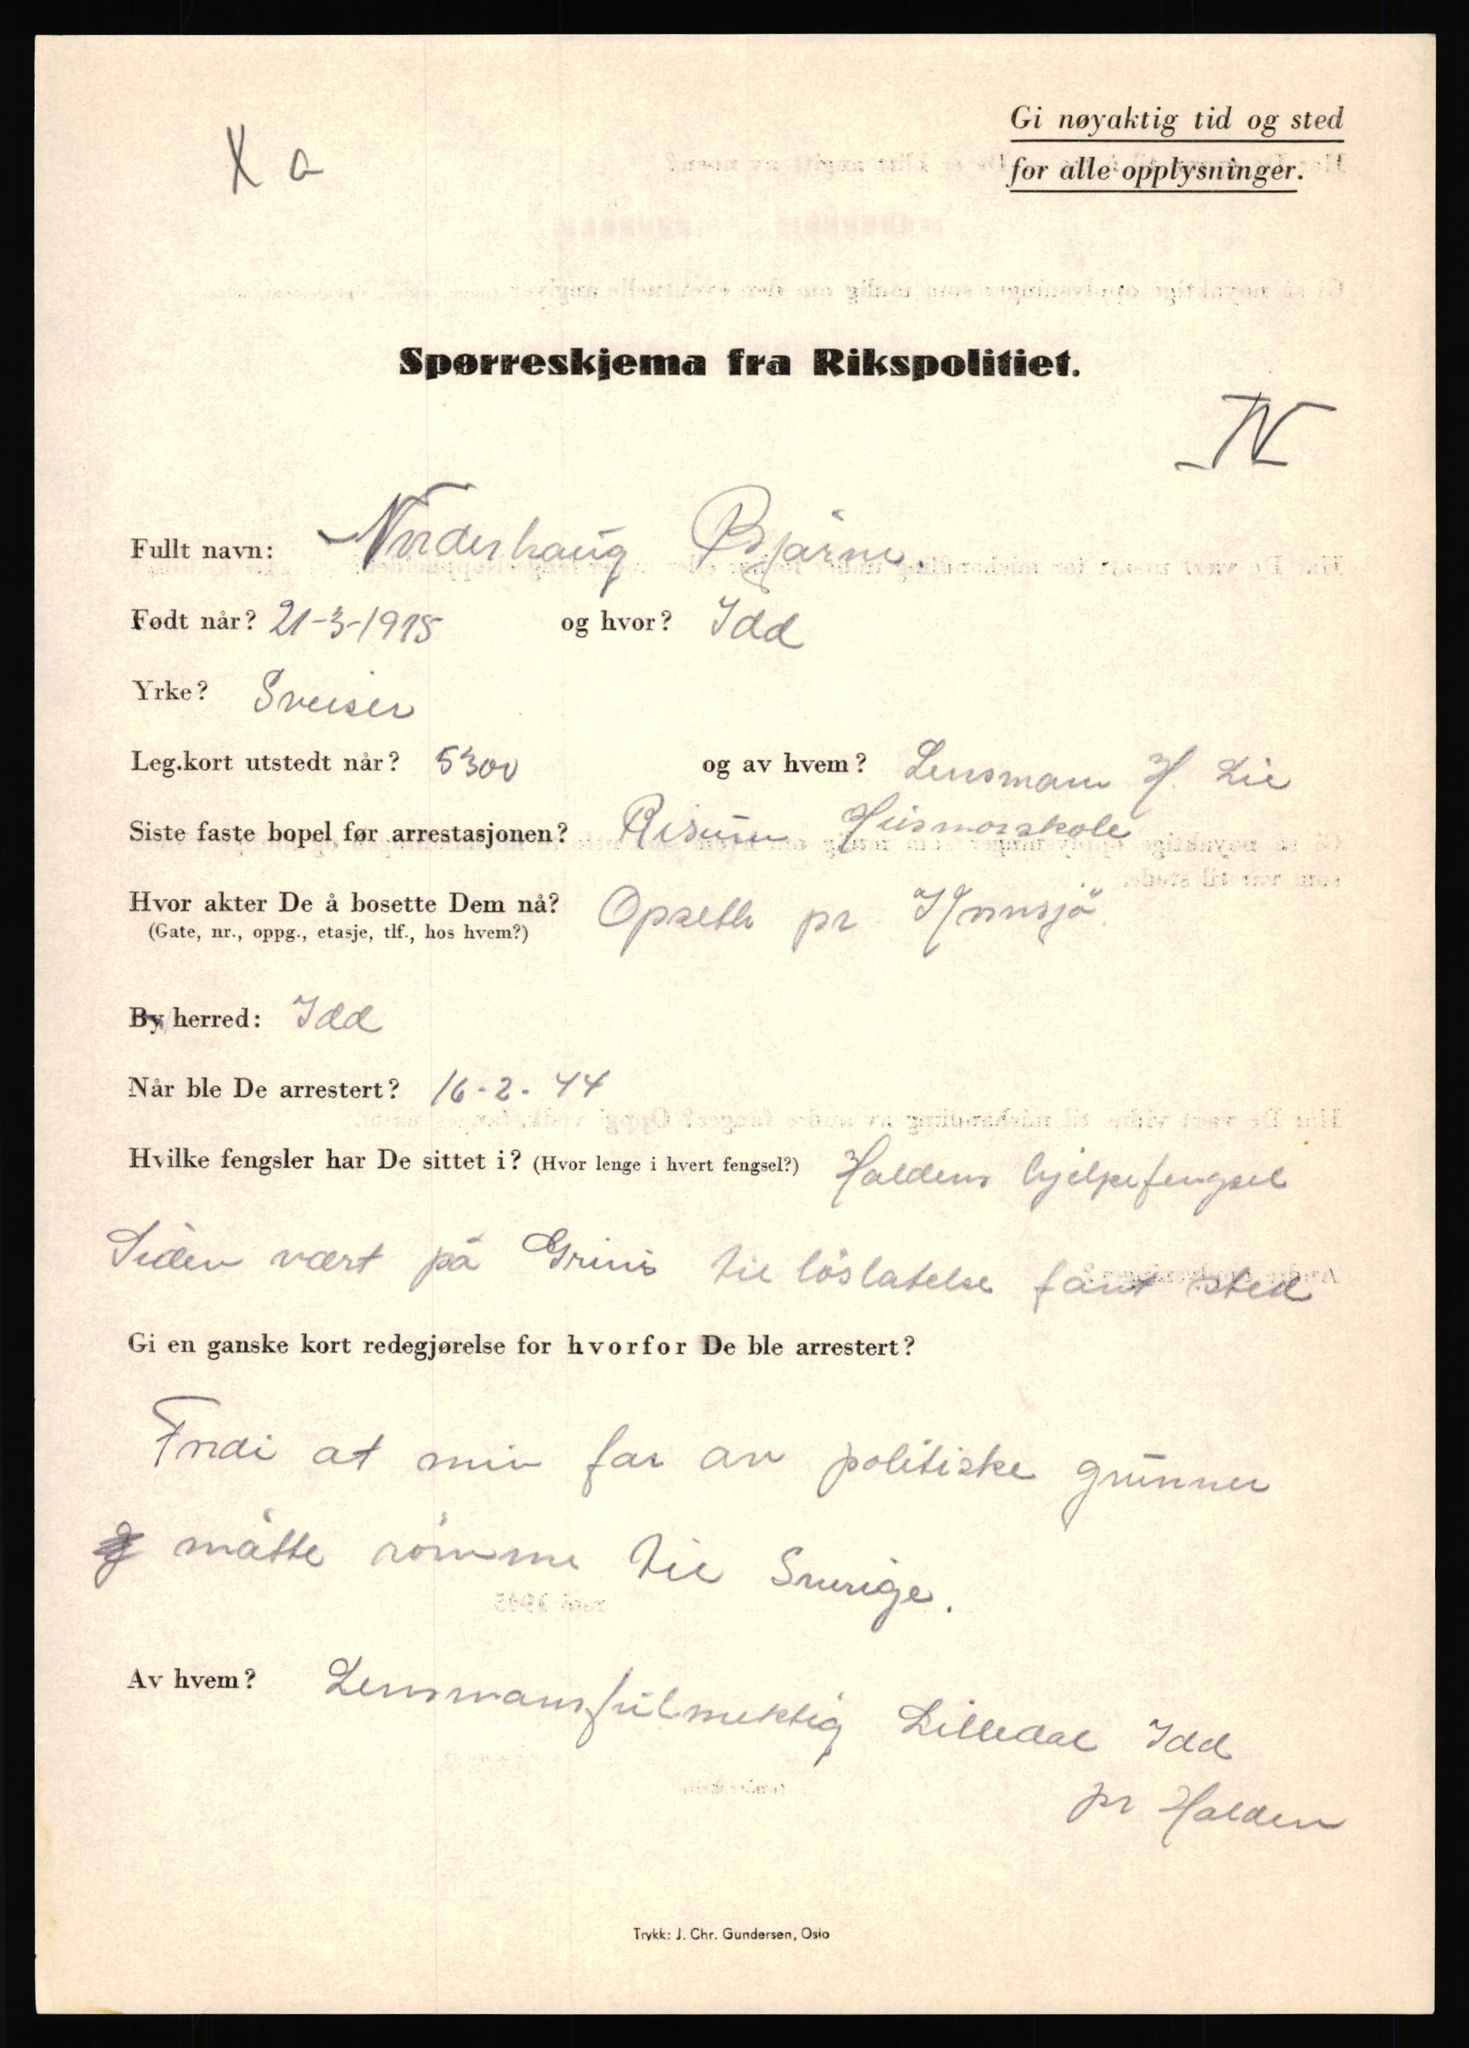 Gi nøyaktig tid og sted
for alle opplysninger.
X a
Spørreskjema fra Rikspolitiet.
N
Fullt navn: Norderhaug Bjarne
Født når? 21-3-1915 og hvor? Idd
Yrke? Sveiser
Leg.kort utstedt når? 5300 og av hvem? Lensmann H. Lie
Siste faste bopel før arrestasjonen? Risum Husmorskole
Hvor akter De å bosette Dem nå? Opseth pr Kornsjö
(Gate, nr., oppg., etasje, tlf., hos hvem?)
By herred: Idd
Når ble De arrestert? 16-2-44
Hvilke fengsler har De sittet i? (Hvor lenge i hvert fengsel?) Haldens hjelpefengsel
Siden vært på Grini til löslatelse fant sted
Gi en ganske kort redegjørelse for hvorfor De ble arrestert?
Fordi at min far av politiske grunner
måtte römme til Sverige.
Av hvem? Lensmansfulmektig Lilledal Idd
pr Halden
Trykk: J. Chr. Gundersen, Oslo